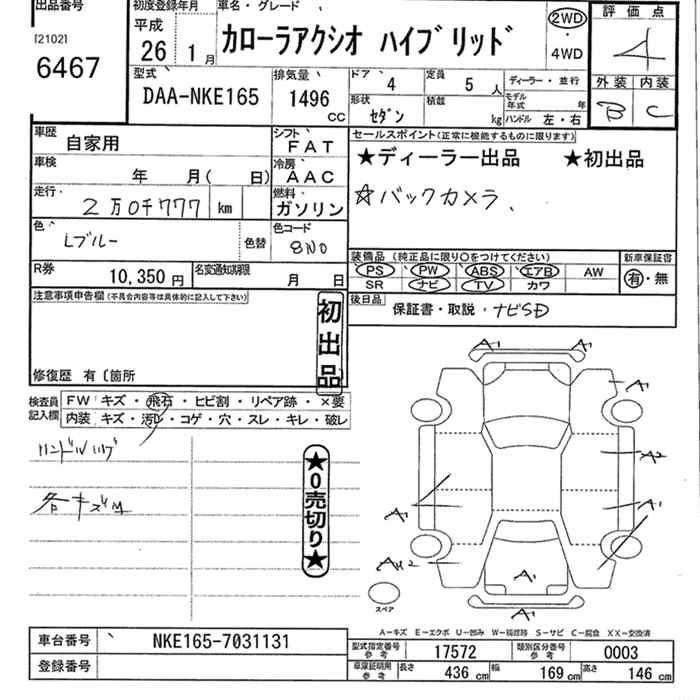 出品番号
[2102]
6467
初度登録年月
平成
26 1月
車名・グレード
カローラアクシオ ハイブリッド
2WD
・
4WD
評価点
4
外装 内装
B C
型式
DAA-NKE165
排気量
1496
CC
ドア
4
定員
5人
ディーラー・並行
形状
セダン
積載
kg
モデル年式 年
ハンドル 左・右
車歴
自家用
シフト
FAT
車検
年 月( 日)
冷房
AAC
走行
2万0千777 km
燃料
ガソリン
色
Lブルー
色替
色コード
8N0
R券
10,350円
名変通知期限
月 日
セールスポイント(正常に機能するものに限ります)
★ディーラー出品 ★初出品
☆バックカメラ
装備品 (純正品に限り○をつけてください)
PS PW ABS エアB AW
SR ナビ TV カワ
新車保証書
有・無
後日品
保証書・取説・ナビSD
注意事項申告欄(不具合内容等は具体的に記入して下さい)
初出品
修復歴 有〔箇所
検査員記入欄
FW キズ・飛石・ヒビ割・リペア跡・×要
内装 キズ・汚レ・コゲ・穴・スレ・キレ・破レ
各キズM
★0売切り★
A1 A1
A1
A2
A1 A1
A1
A1
スペア
A―キズ E―エクボ U―凹み W―補修跡 S―サビ C―腐食 XX―交換済
車台番号
NKE165-7031131
登録番号
型式指定番号
参考
17572
類別区分番号
参考
0003
車庫証明用
参考
長さ 436 cm
幅 169 cm
高さ 146 cm